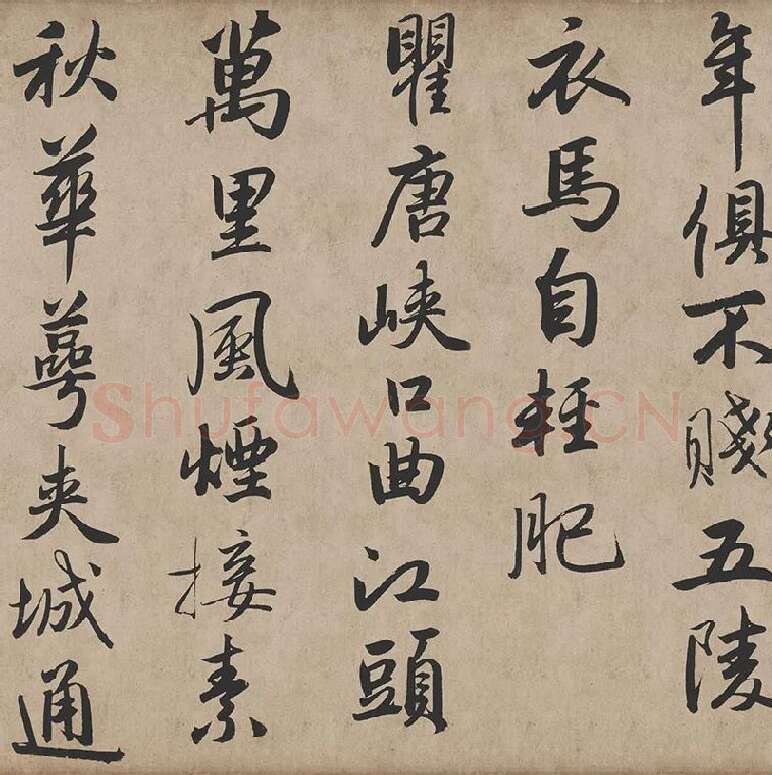 年俱不賤五陵
衣馬自輕肥
瞿唐峽口曲江頭
萬里風煙接素
秋華萼夾城通
Shufawang.CN